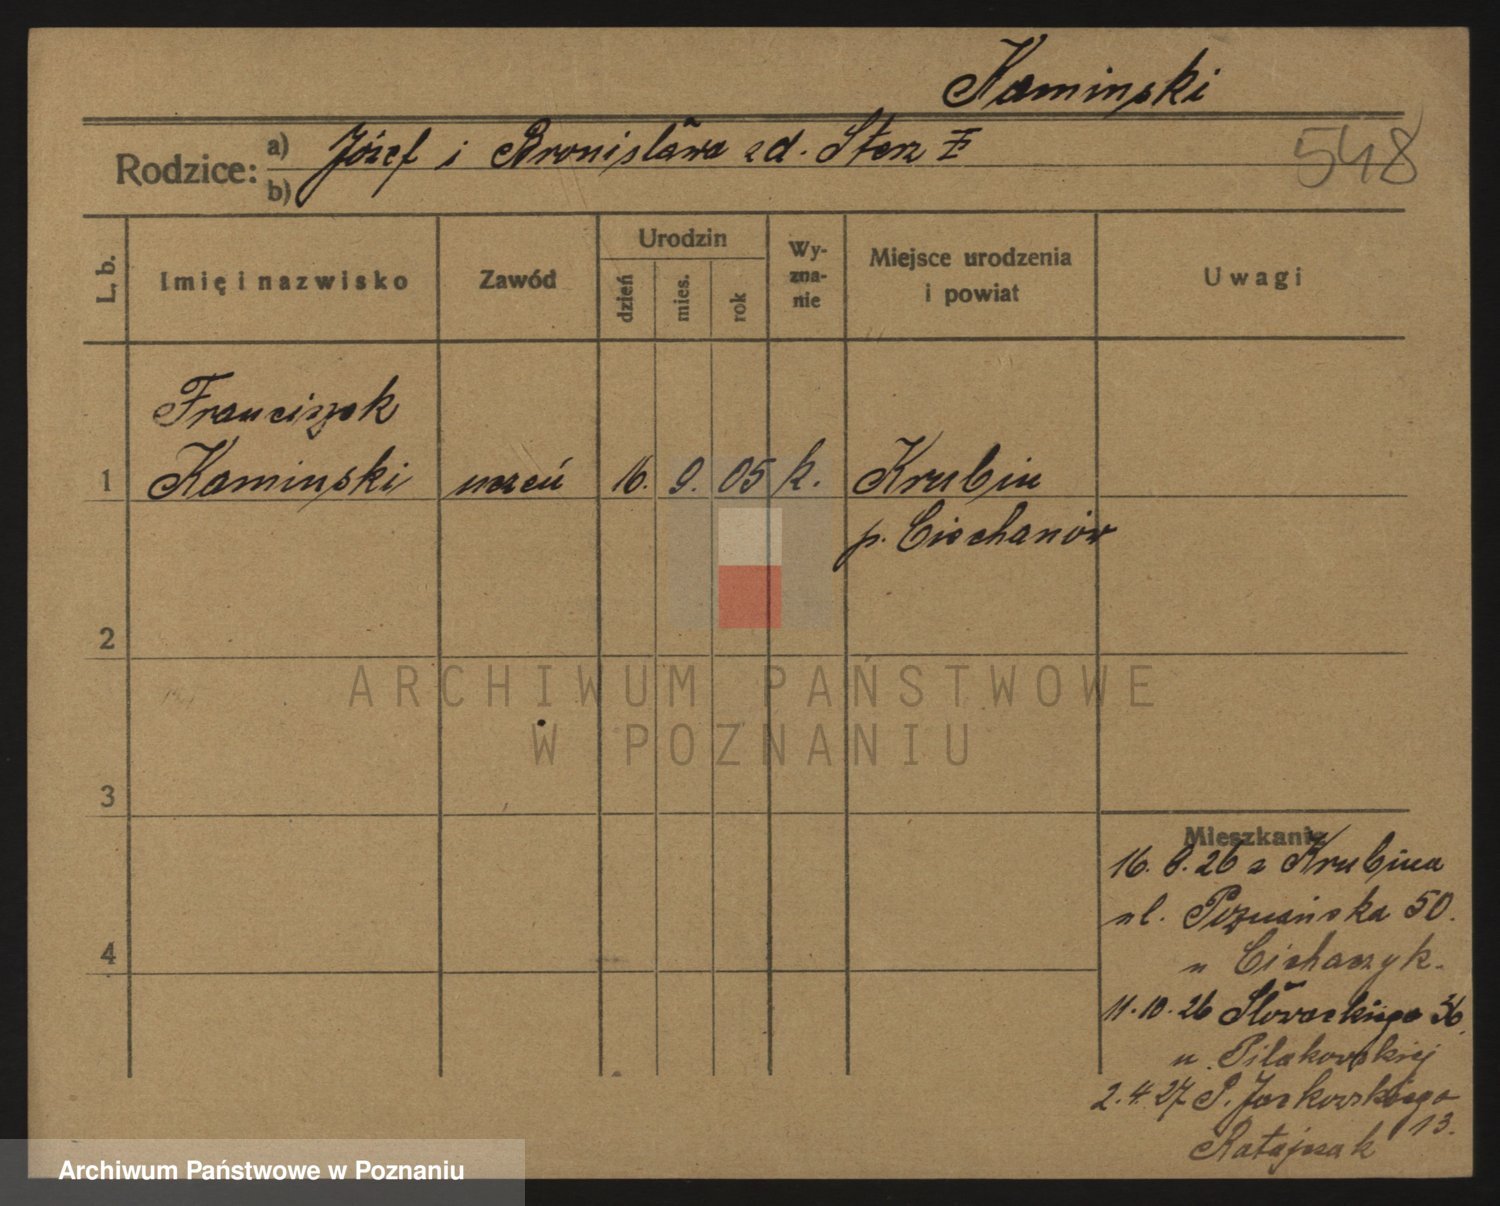 Kaminski
548
Rodzice: a) Józef i Bronisława zd. Sterz
b)
L. b.
Imię i nazwisko
Zawód
Urodzin
dzień
mies.
rok
Wy-
zna-
nie
Miejsce urodzenia
i powiat
Uwagi
Franciszek
1 Kaminski uczeń 16. 9. 05 k. Krubin
p. Ciechanów
2
ARCHIWUM PAŃSTWOWE
W POZNANIU
3
Mieszkanie
16. 8. 26 z Krubina
ul. Poznańska 50.
u Cichaczyk.
11. 10. 26 Słowackiego 36.
u Pilakowskiej
2. 4. 27 P. Jackowskiego
13.
Ratajczak
4
Archiwum Państwowe w Poznaniu